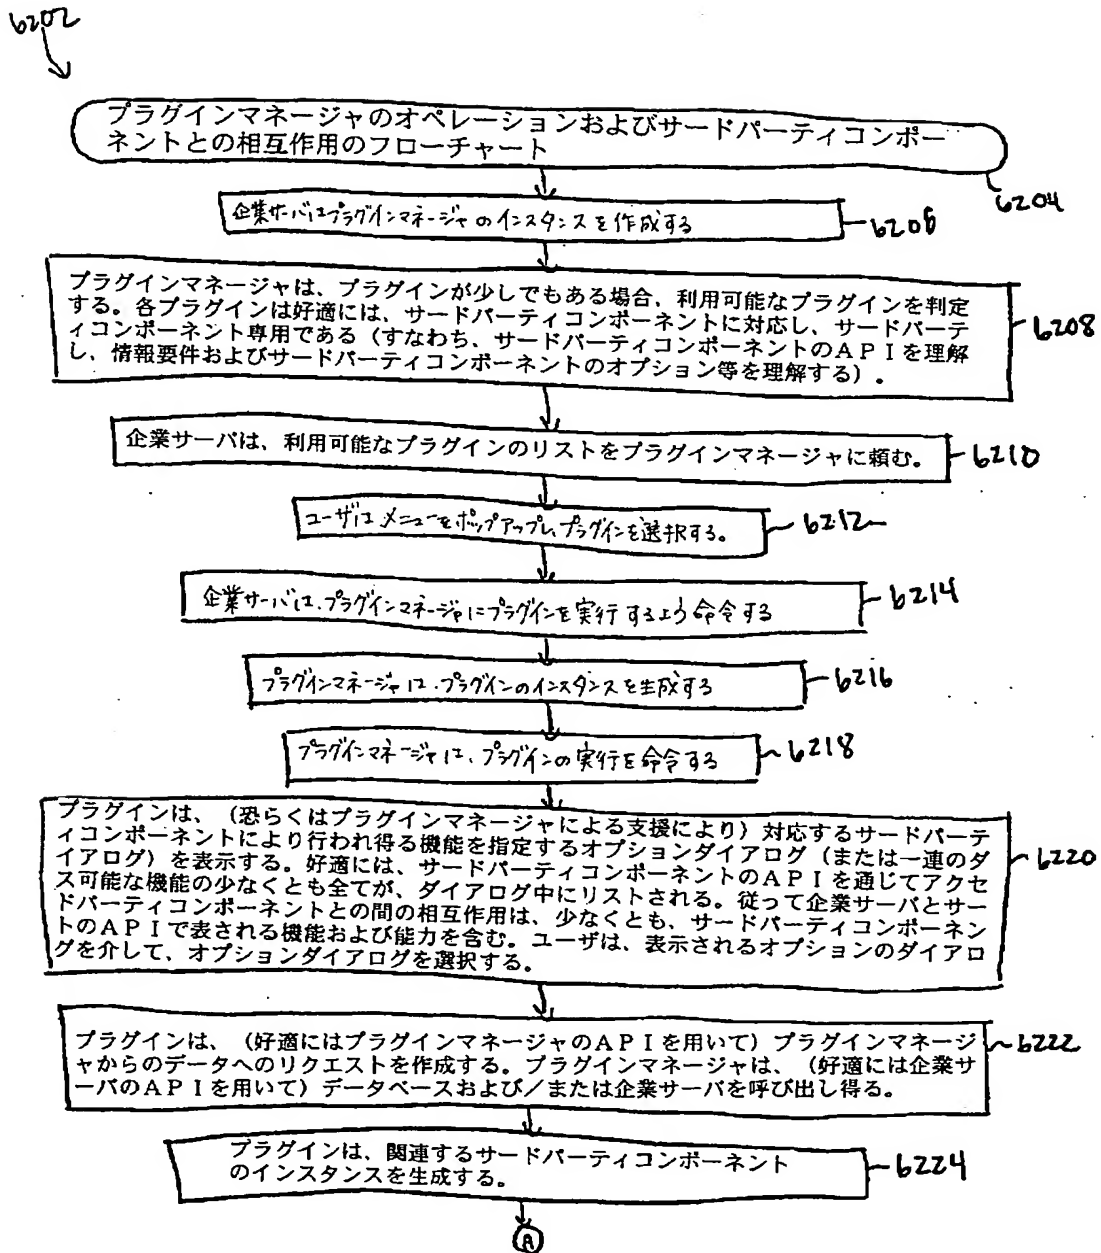 6202
プラグインマネージャのオペレーションおよびサードパーティコンポー
ネントとの相互作用のフローチャート
6204
企業サーバはプラグインマネージャのインスタンスを作成する
6206
プラグインマネージャは、プラグインが少しでもある場合、利用可能なプラグインを判定
する。各プラグインは好適には、サードパーティコンポーネントに対応し、サードパーテ
ィコンポーネント専用である(すなわち、サードパーティコンポーネントのAPIを理解
し、情報要件およびサードパーティコンポーネントのオプション等を理解する)。
6208
企業サーバは、利用可能なプラグインのリストをプラグインマネージャに頼む。
6210
ユーザは、メニューをポップアップし、プラグインを選択する。
6212
企業サーバは、プラグインマネージャにプラグインを実行するよう命令する
6214
プラグインマネージャは、プラグインのインスタンスを生成する
6216
プラグインマネージャは、プラグインの実行を命令する
6218
プラグインは、(恐らくはプラグインマネージャによる支援により)対応するサードパーテ
ィコンポーネントにより行われ得る機能を指定するオプションダイアログ(または一連のダ
イアログ)を表示する。好適には、サードパーティコンポーネントのAPIを通じてアクセ
ス可能な機能の少なくとも全てが、ダイアログ中にリストされる。従って企業サーバとサー
ドパーティコンポーネントとの間の相互作用は、少なくとも、サードパーティコンポーネン
トのAPIで表される機能および能力を含む。ユーザは、表示されるオプションのダイアロ
グを介して、オプションダイアログを選択する。
6220
プラグインは、(好適にはプラグインマネージャのAPIを用いて)プラグインマネージ
ャからのデータへのリクエストを作成する。プラグインマネージャは、(好適には企業サ
ーバのAPIを用いて)データベースおよび/または企業サーバを呼び出し得る。
6222
プラグインは、関連するサードパーティコンポーネント
のインスタンスを生成する。
6224
A